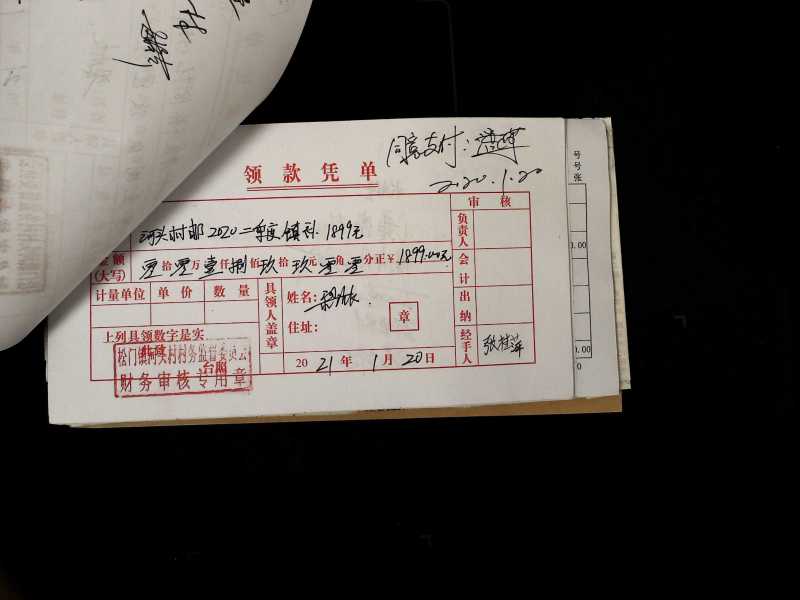 同意支付:
2020.1.20
领款凭单
审核
河头村邮2020二季度镇补1899元
金额(大写) 零拾零万壹仟捌佰玖拾玖元零角零分正¥1899.00元
负责人
会计
出纳
经手人 张桂萍
计量单位 单价 数量
具领人盖章
姓名:
住址:
章
上列具领数字是实
2021年1月20日
松门镇河头村村务监督委员会
财务审核专用章
号
号
张
0.00
0.00
0